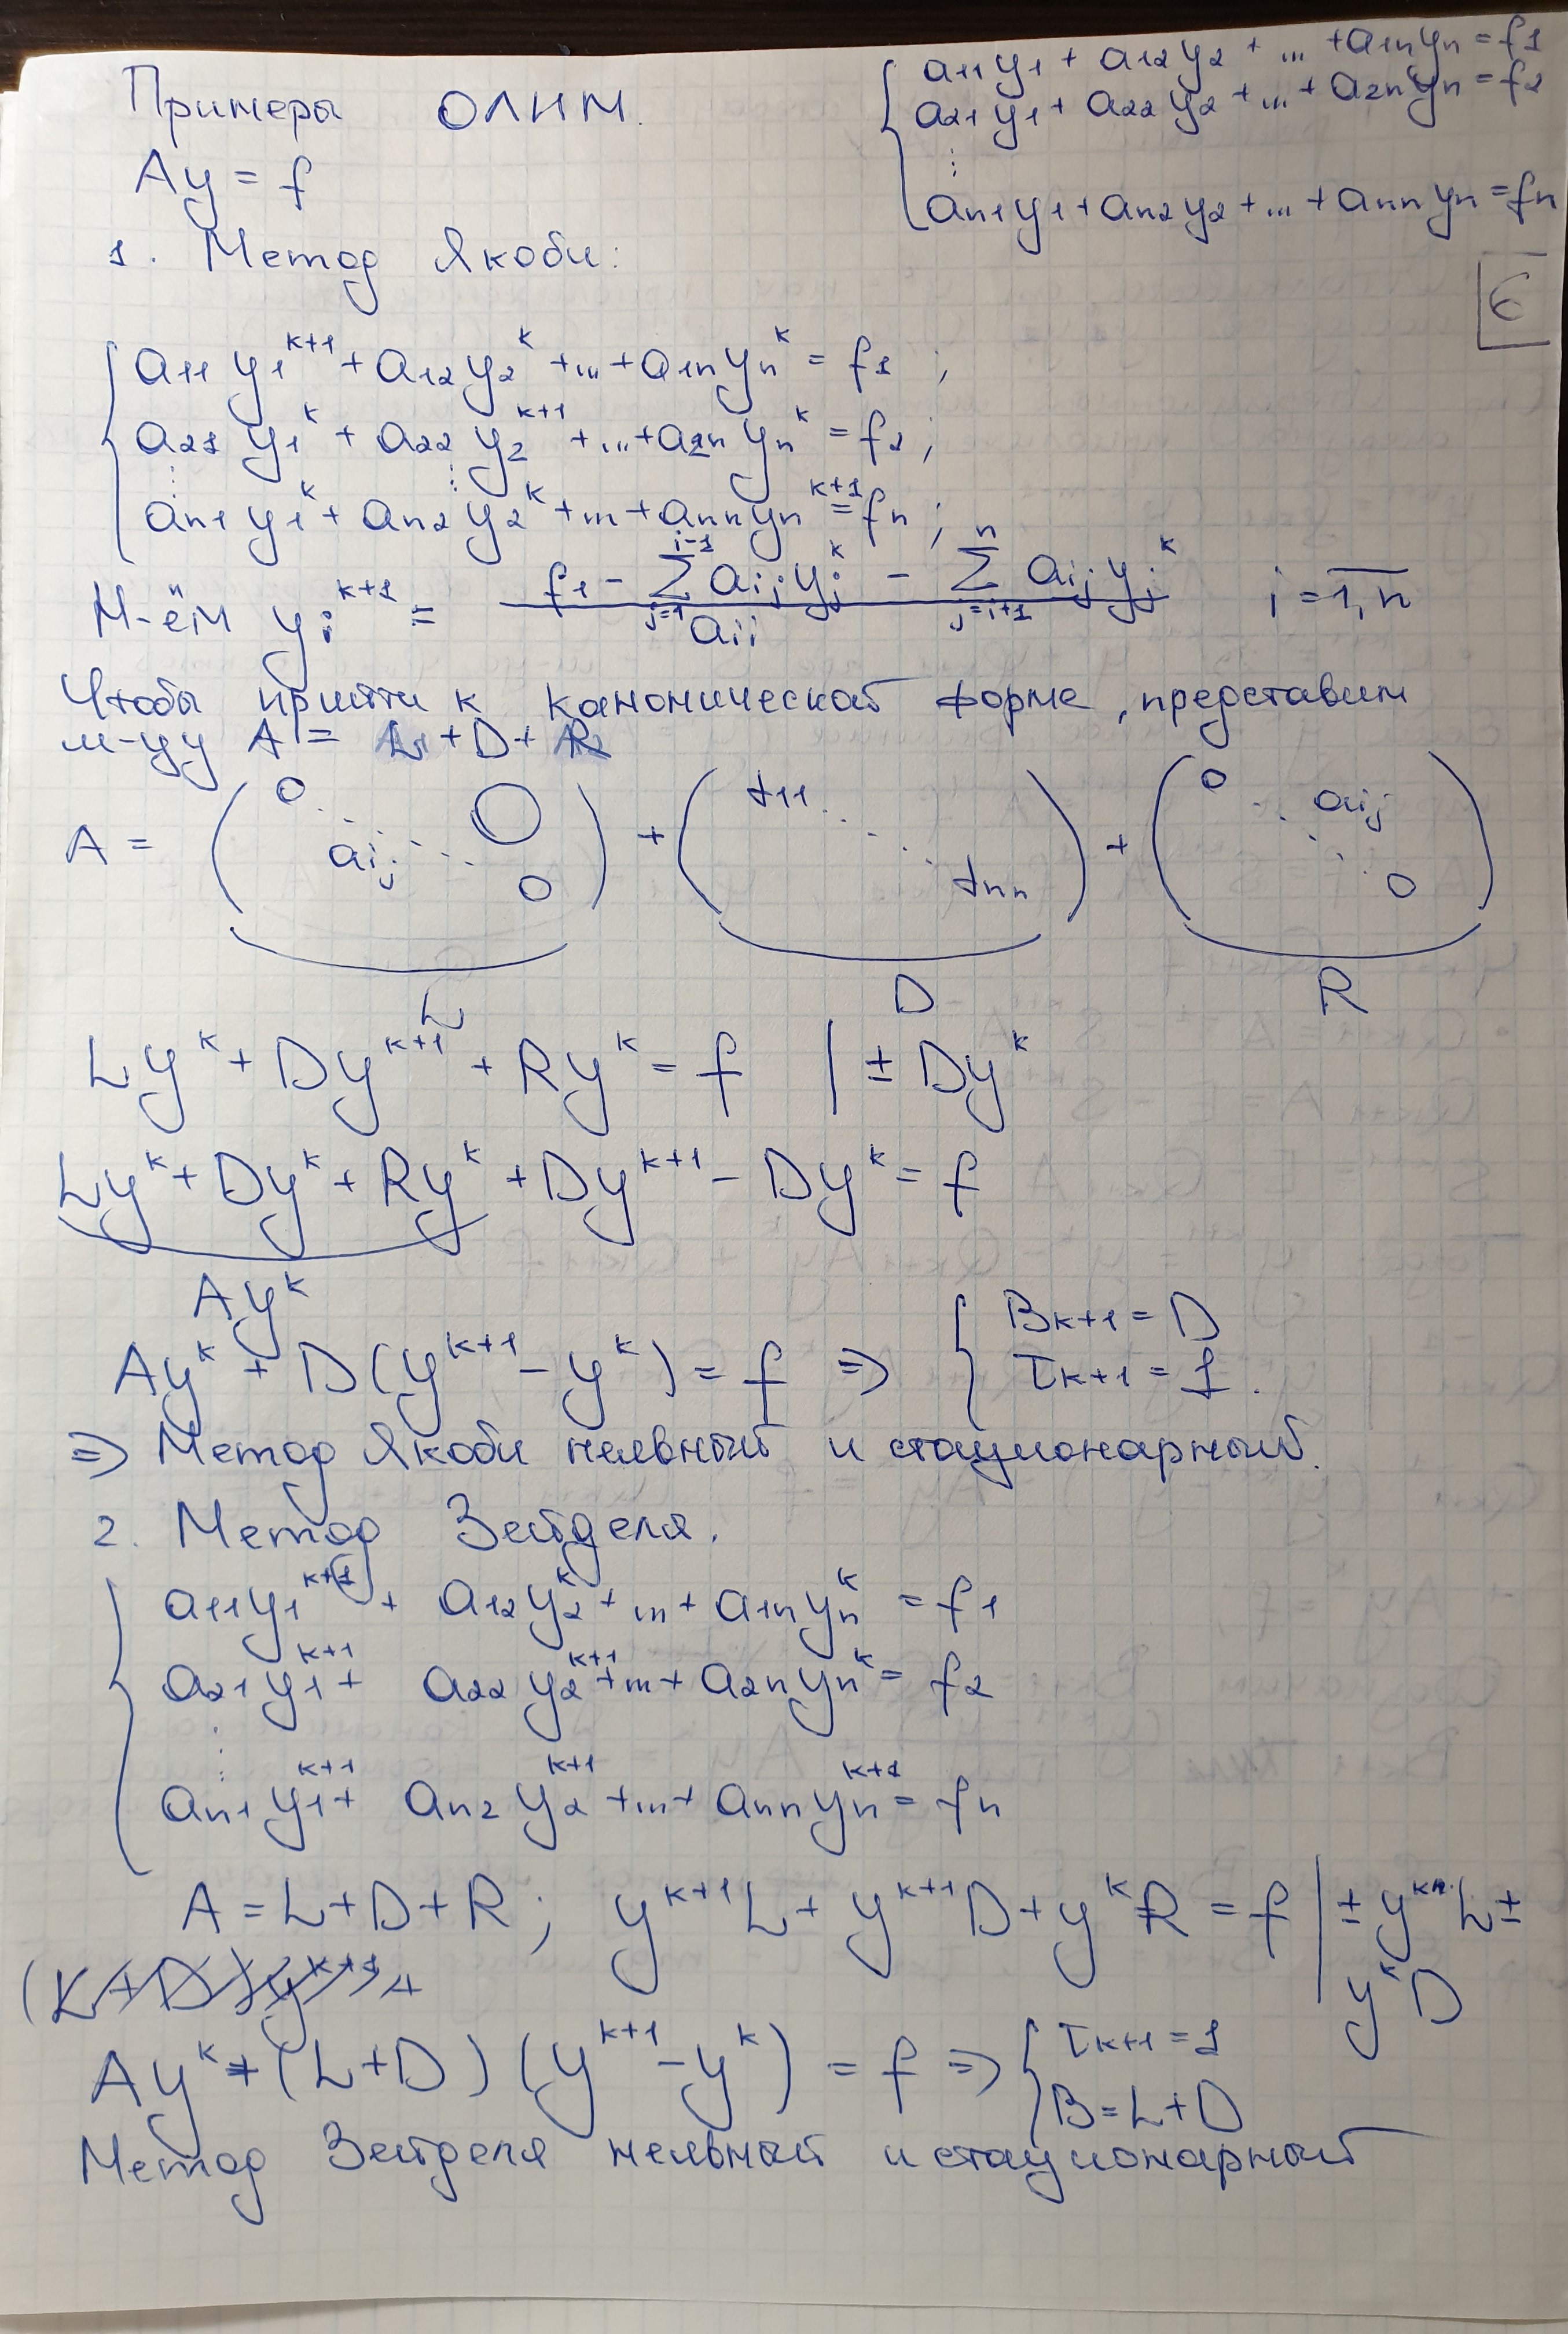 Примеры ОЛИМ.
a₁₁y₁ + a₁₂y₂ + ... + a₁ₙyₙ = f₁
a₂₁y₁ + a₂₂y₂ + ... + a₂ₙyₙ = f₂
⋮
aₙ₁y₁ + aₙ₂y₂ + ... + aₙₙyₙ = fₙ
Ay = f
1. Метод Якоби:
6
a₁₁y₁^{k+1} + a₁₂y₂^k + ... + a₁ₙyₙ^k = f₁ ;
a₂₁y₁^k + a₂₂y₂^{k+1} + ... + a₂ₙyₙ^k = f₂ ;
⋮ ⋮
aₙ₁y₁^k + aₙ₂y₂^k + ... + aₙₙyₙ^{k+1} = fₙ ;
М-ём yᵢ^{k+1} = (f₁ - Σ_{j=1}^{i-1} aᵢⱼyⱼ^k - Σ_{j=i+1}^{n} aᵢⱼyⱼ^k) / aᵢᵢ i = 1,n
Чтобы прийти к канонической форме, представим
м-цу A = L + D + R
A = (0 ⋱ aᵢⱼ 0 0) + (d₁₁ ⋱ dₙₙ) + (0 ⋱ aᵢⱼ 0)
L D R
Ly^k + Dy^{k+1} + Ry^k = f | ± Dy^k
Ly^k + Dy^k + Ry^k + Dy^{k+1} - Dy^k = f
Ay^k
Ay^k + D(y^{k+1} - y^k) = f ⇒ { B_{k+1} = D
τ_{k+1} = 1.
⇒ Метод Якоби неявный и стационарный.
2. Метод Зейделя.
a₁₁y₁^{k+1} + a₁₂y₂^k + ... + a₁ₙyₙ^k = f₁
a₂₁y₁^{k+1} + a₂₂y₂^{k+1} + ... + a₂ₙyₙ^k = f₂
⋮
aₙ₁y₁^{k+1} + aₙ₂y₂^{k+1} + ... + aₙₙyₙ^{k+1} = fₙ
A = L + D + R ; y^{k+1}L + y^{k+1}D + y^kR = f | ± y^{k}L ±
y^kD
(L+D)y^{k+1} +
Ay^k + (L+D)(y^{k+1} - y^k) = f ⇒ { τ_{k+1} = 1
B = L + D
Метод Зейделя неявный и стационарный